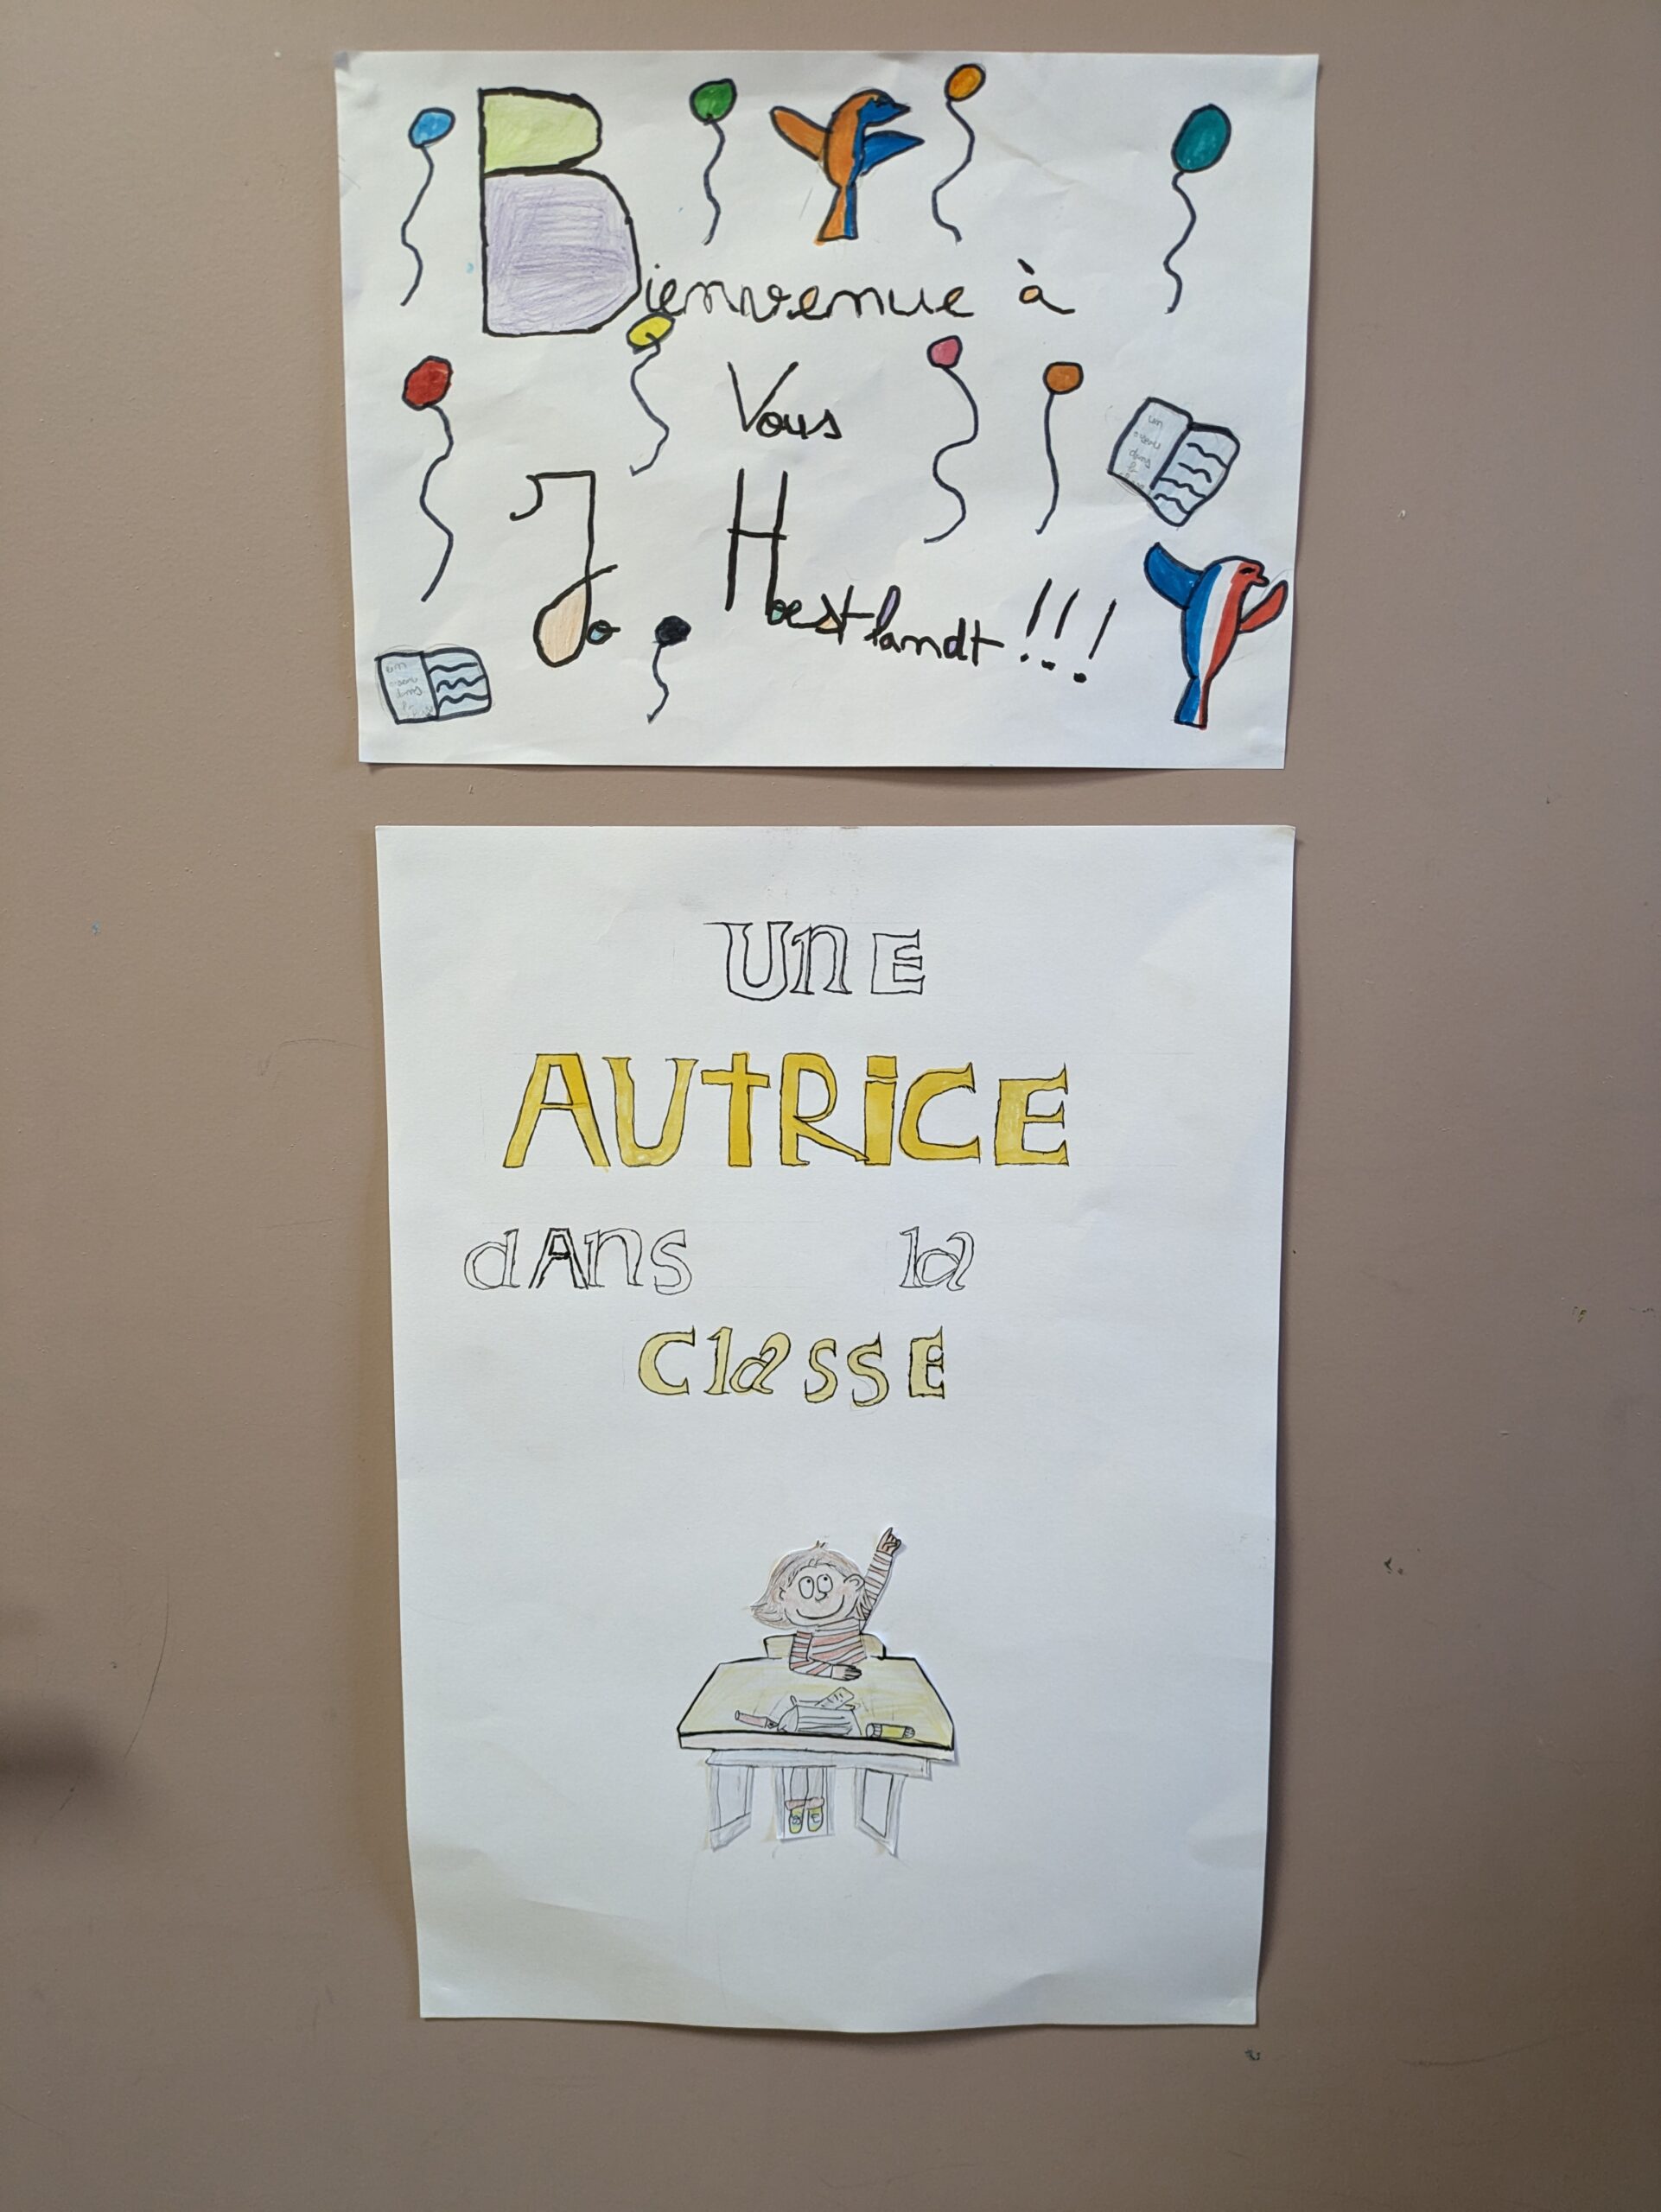 Bienvenue à
Vous
Jo Hoestlandt !!!
UnE
AUtRiCE
dAns la
ClassE